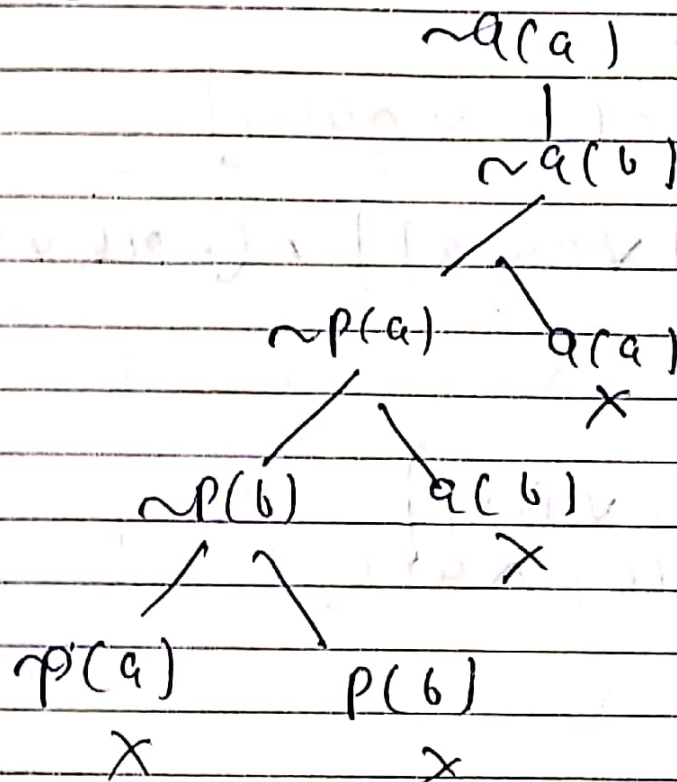 ~q(a)
~q(b)
~p(a) q(a)
×
~p(b) q(b)
×
~p(a) p(b)
× ×